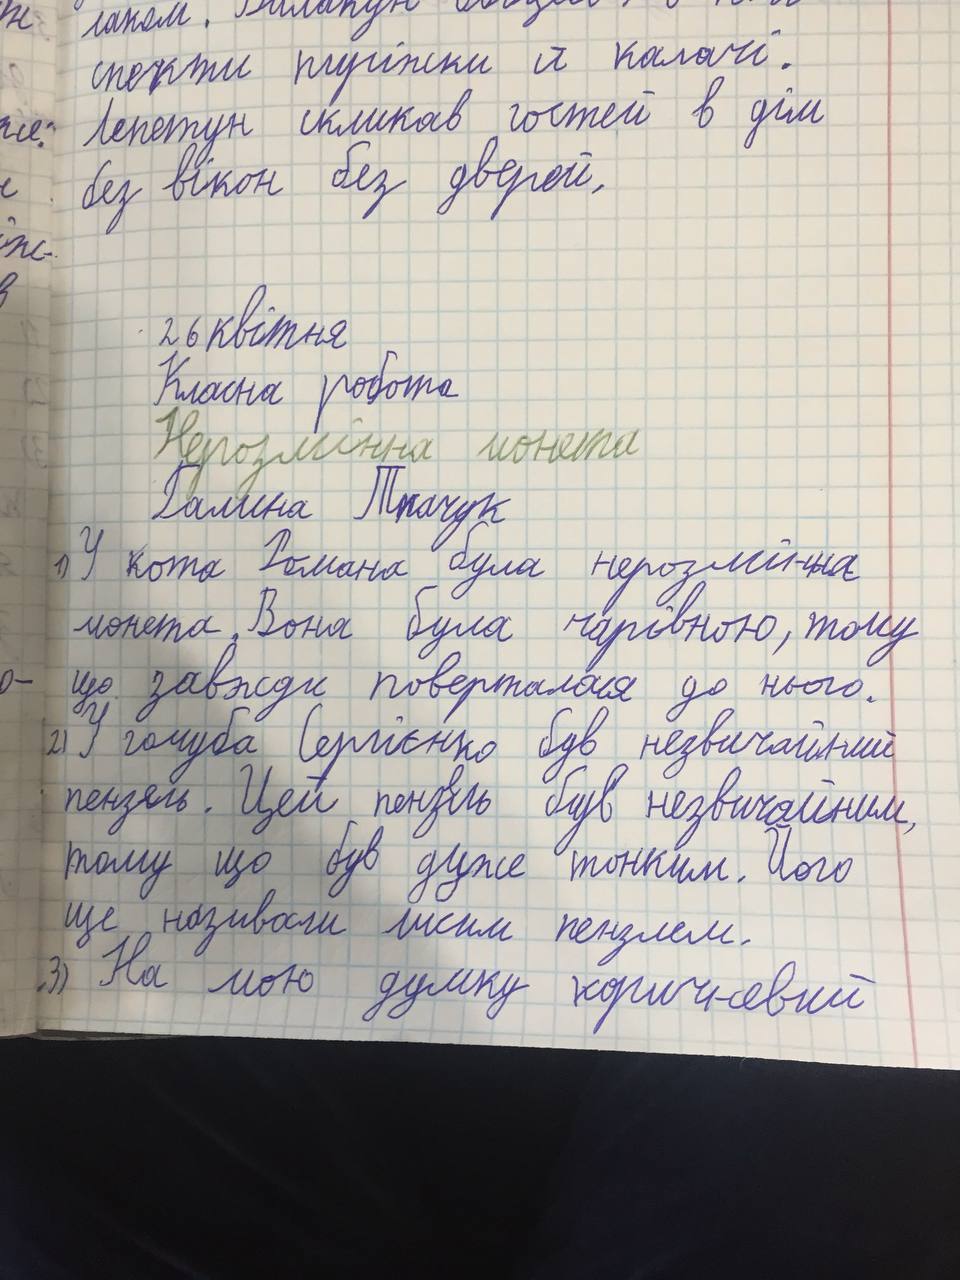 лаком.
спекти пиріжки й калачі.
Лепетун скликав гостей в дім
без вікон без дверей.
26 квітня
Класна робота
Нерозмінна монета
Галина Ткачук
1) У кота Романа була нерозмінна
монета. Вона була чарівною, тому
що завжди поверталася до нього.
2) У голуба Сергієнко був незвичайний
пензель. Цей пензель був незвичайним,
тому що був дуже тонким. Його
ще називали лисим пензлем.
3) На мою думку коричневий